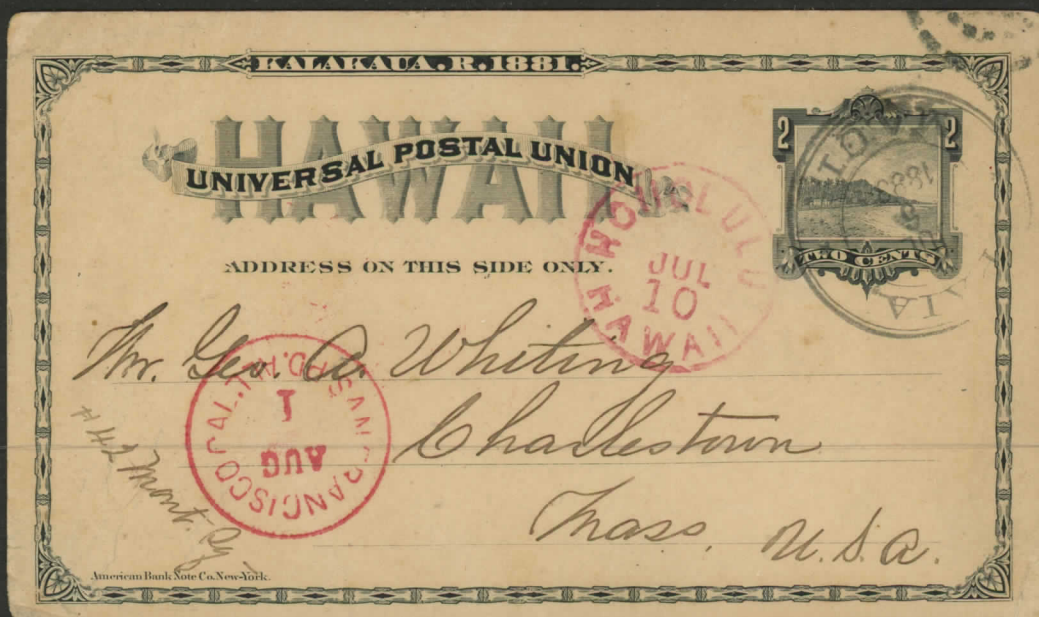 KALAKAUA . R . 1881 .
HAWAII
UNIVERSAL POSTAL UNION
2 2
TWO CENTS
ADDRESS ON THIS SIDE ONLY.
HONOLULU
JUL
10
HAWAII
Mr. Geo. A. Whiting
Charlestown
Mass. U.S.A.
SAN FRANCISCO CAL.
1
AUG
42 Mont.
American Bank Note Co. New-York.